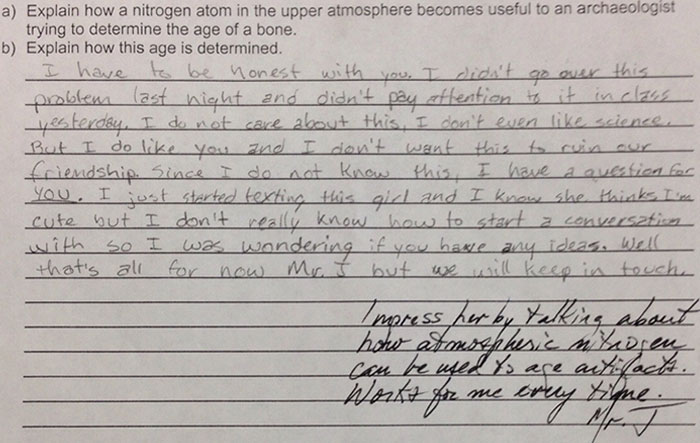 a) Explain how a nitrogen atom in the upper atmosphere becomes useful to an archaeologist
trying to determine the age of a bone.
b) Explain how this age is determined.
I have to be honest with you. I didn't go over this
problem last night and didn't pay attention to it in class
yesterday. I do not care about this, I don't even like science.
But I do like you and I don't want this to ruin our
friendship. Since I do not know this, I have a question for
you. I just started texting this girl and I know she thinks I'm
cute but I don't really know how to start a conversation
with so I was wondering if you have any ideas. Well
that's all for now Mr. J but we will keep in touch.
Impress her by talking about
how atmospheric nitrogen
can be used to age artifacts.
Works for me every time.
Mr. J